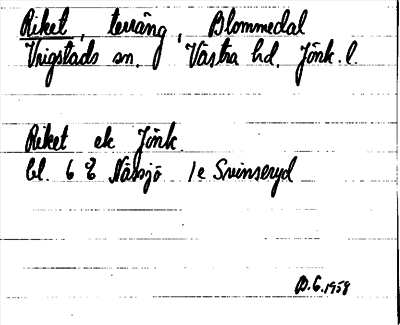 Riket, terräng, Blommedal
Vrigstads sn. Västra hd. Jönk. l.
Riket ek Jönk.
bl. 6 E Nässjö 1e Svinseryd
D.G. 1958